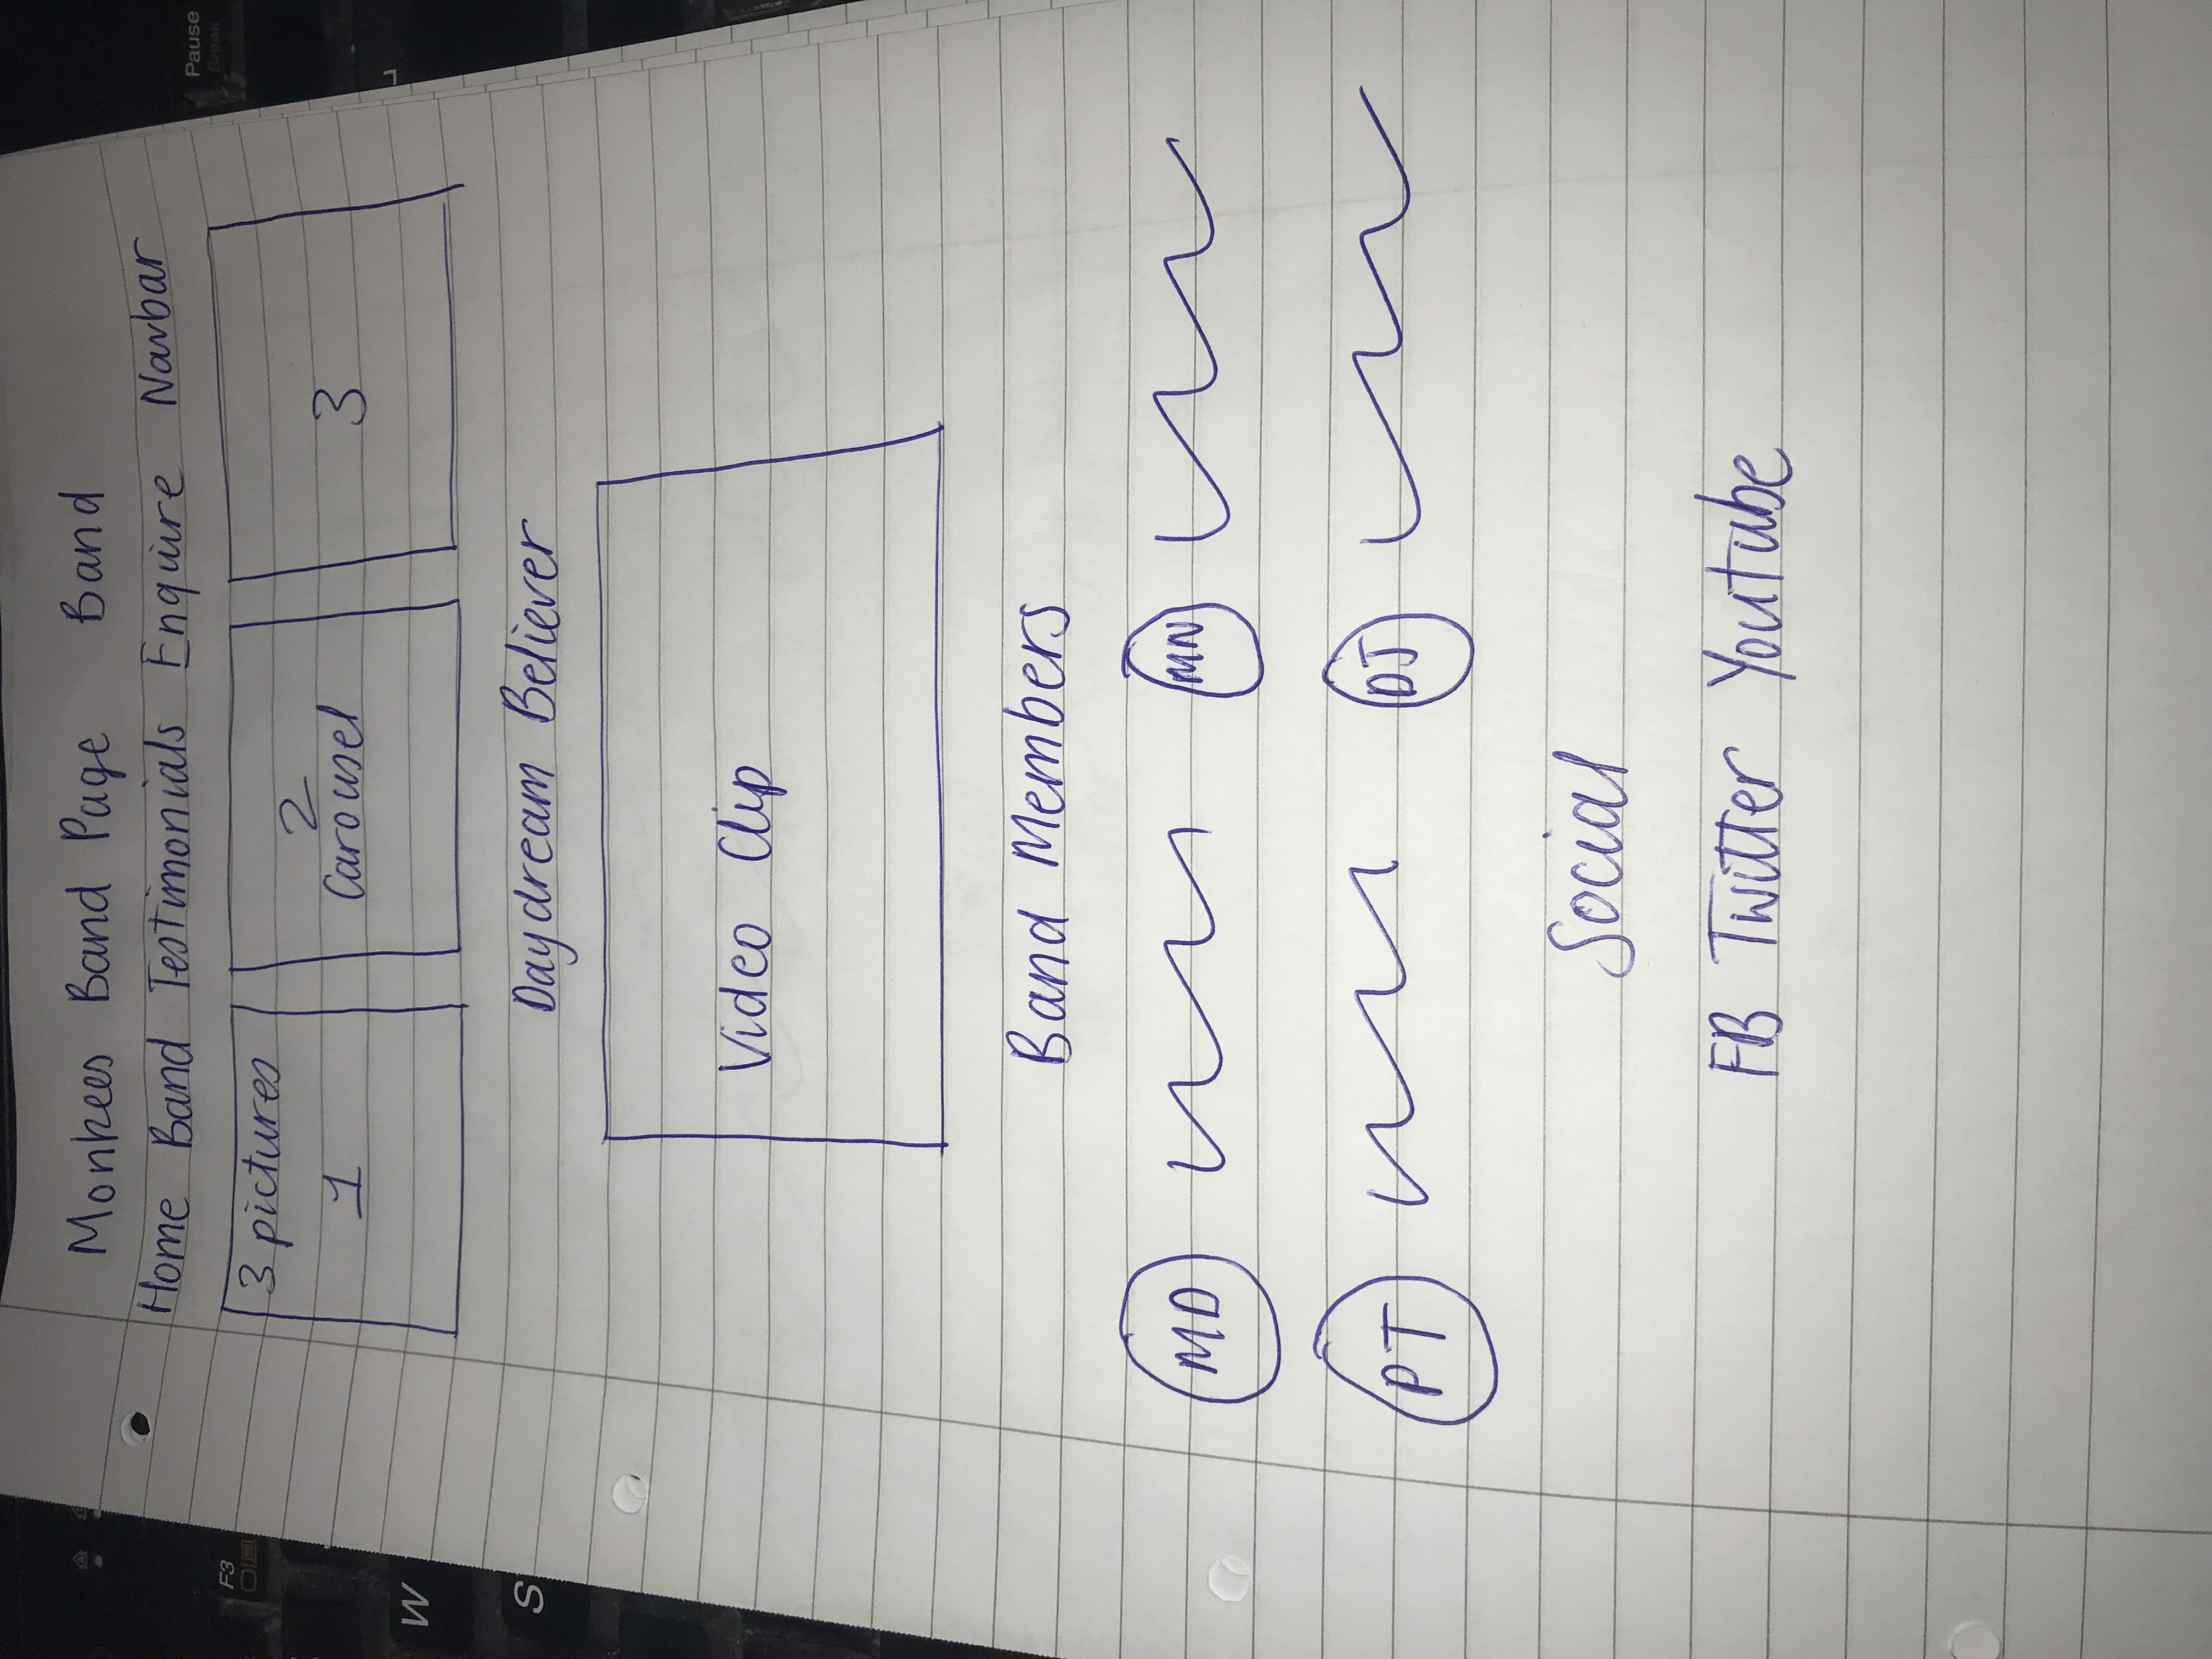 Monkees Band Page Band
Home Band Testimonials Enquire Navbar
3 pictures
1
2
Carousel
3
Daydream Believer
Video Clip
Band Members
MD
MN
PT
DJ
Social
FB Twitter Youtube
F3
W
S
Pause
Break